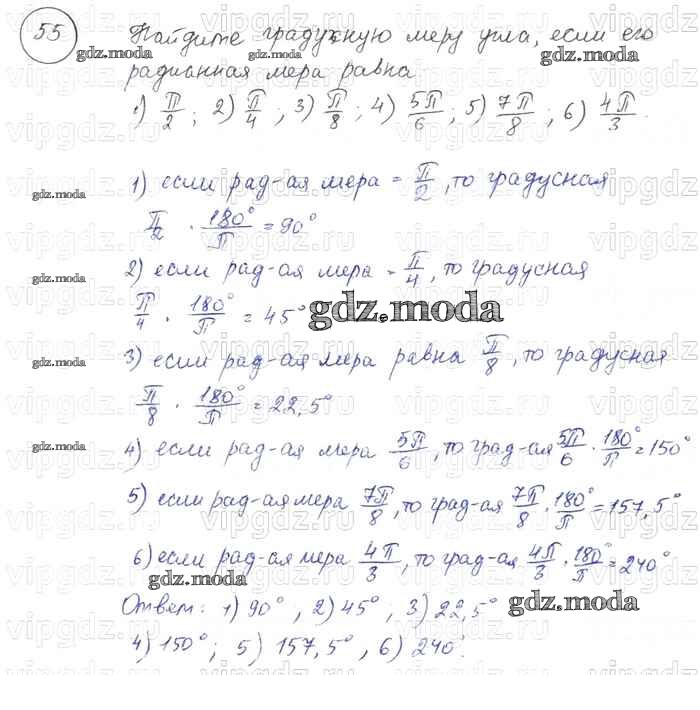 55 Найдите градусную меру угла, если его
радианная мера равна
1) π/2; 2) π/4, 3) π/8; 4) 5π/6; 5) 7π/8, 6) 4π/3.
1) если рад-ая мера = π/2, то градусная
π/2 · 180°/π = 90°
2) если рад-ая мера = π/4, то градусная
π/4 · 180°/π = 45°
3) если рад-ая мера равна π/8, то градусная
π/8 · 180°/π = 22,5°
4) если рад-ая мера 5π/6, то град-ая 5π/6 · 180°/π = 150°
5) если рад-ая мера 7π/8, то град-ая 7π/8 · 180°/π = 157,5°
6) если рад-ая мера 4π/3, то град-ая 4π/3 · 180°/π = 240°
Ответ: 1) 90°, 2) 45°, 3) 22,5°
4) 150°; 5) 157,5°, 6) 240°.
gdz.moda
vipgdz.ru